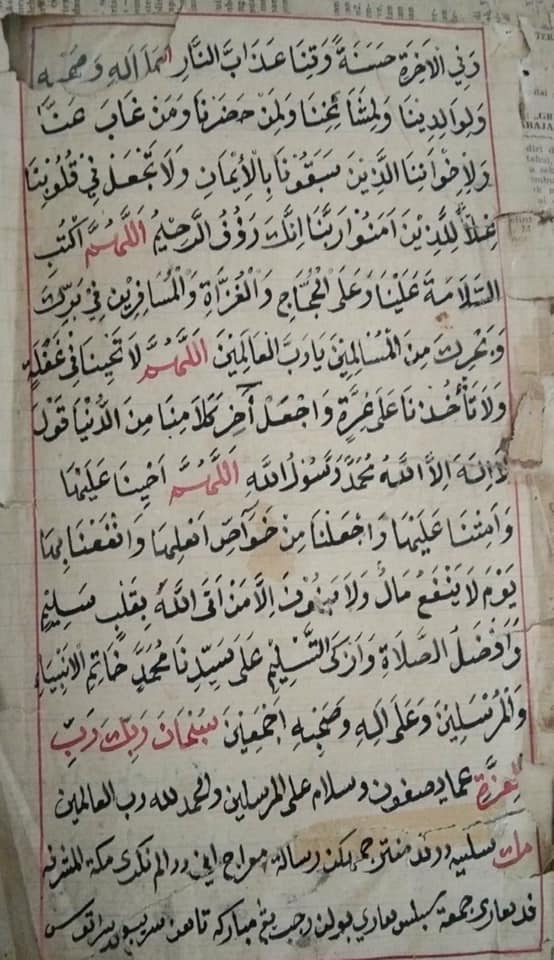 وَفِي الْاَخِرَةِ حَسَنَةً وَقِنَا عَذَابَ النَّارِ اَلِهِ وَصَحْبِهِ
وَلِوَالِدِينَا وَلِمَشَائِخِنَا وَلِمَنْ حَضَرَنَا وَمَنْ غَابَ عَنَّا
وَلِاِخْوَانِنَا الَّذِيْنَ سَبَقُوْنَا بِالْاِيْمَانِ وَلَا تَجْعَلْ فِي قُلُوْبِنَا
غِلًّا لِلَّذِيْنَ اٰمَنُوْا رَبَّنَا اِنَّكَ رَؤُفُ الرَّحِيْمُ اَللّٰهُمَّ اكْتُبِ
السَّلَامَةَ عَلَيْنَا وَعَلَى الْحُجَّاجِ وَالْغُزَاةِ وَالْمُسَافِرِيْنَ فِي بَرِّكَ
وَبَحْرِكَ مِنَ الْمُسْلِمِيْنَ يَا رَبَّ الْعَالَمِيْنَ اَللّٰهُمَّ لَا تُحْيِنَا فِي غَفْلَةٍ
وَلَا تَأْخُذْنَا عَلَى غِرَّةٍ وَاجْعَلْ آخِرَ كَلَامِنَا مِنَ الدُّنْيَا قَوْلَ
لَا اِلَهَ اِلَّا اللّٰهُ مُحَمَّدٌ رَسُوْلُ اللّٰهِ اَللّٰهُمَّ اَحْيِنَا عَلَيْهَا
وَاَمِتْنَا عَلَيْهَا وَاجْعَلْنَا مِنْ خَوَآصِّ اَهْلِهَا وَانْفَعْنَا بِهَا
يَوْمَ لَا يَنْفَعُ مَالٌ وَلَا بَنُوْنَ اِلَّا مَنْ اَتَى اللّٰهَ بِقَلْبٍ سَلِيْمٍ
وَاَفْضَلُ الصَّلَاةِ وَاَزْكَى التَّسْلِيْمِ عَلَى سَيِّدِنَا مُحَمَّدٍ خَاتِمِ الْاَنْبِيَاءِ
وَالْمُرْسَلِيْنَ وَعَلَى اٰلِهِ وَصَحْبِهِ اَجْمَعِيْنَ سُبْحَانَ رَبِّكَ رَبِّ
الْعِزَّةِ عما يصفون وسلام على المرسلين والحمد لله رب العالمين
مك سلسيه درفد منترجمهكن رسالة معراج اين ددالم نكري مكة المشرفه
فد هاري جمعة سبلس هاري بولن رجب يڠ مباركه تاهن سريبو